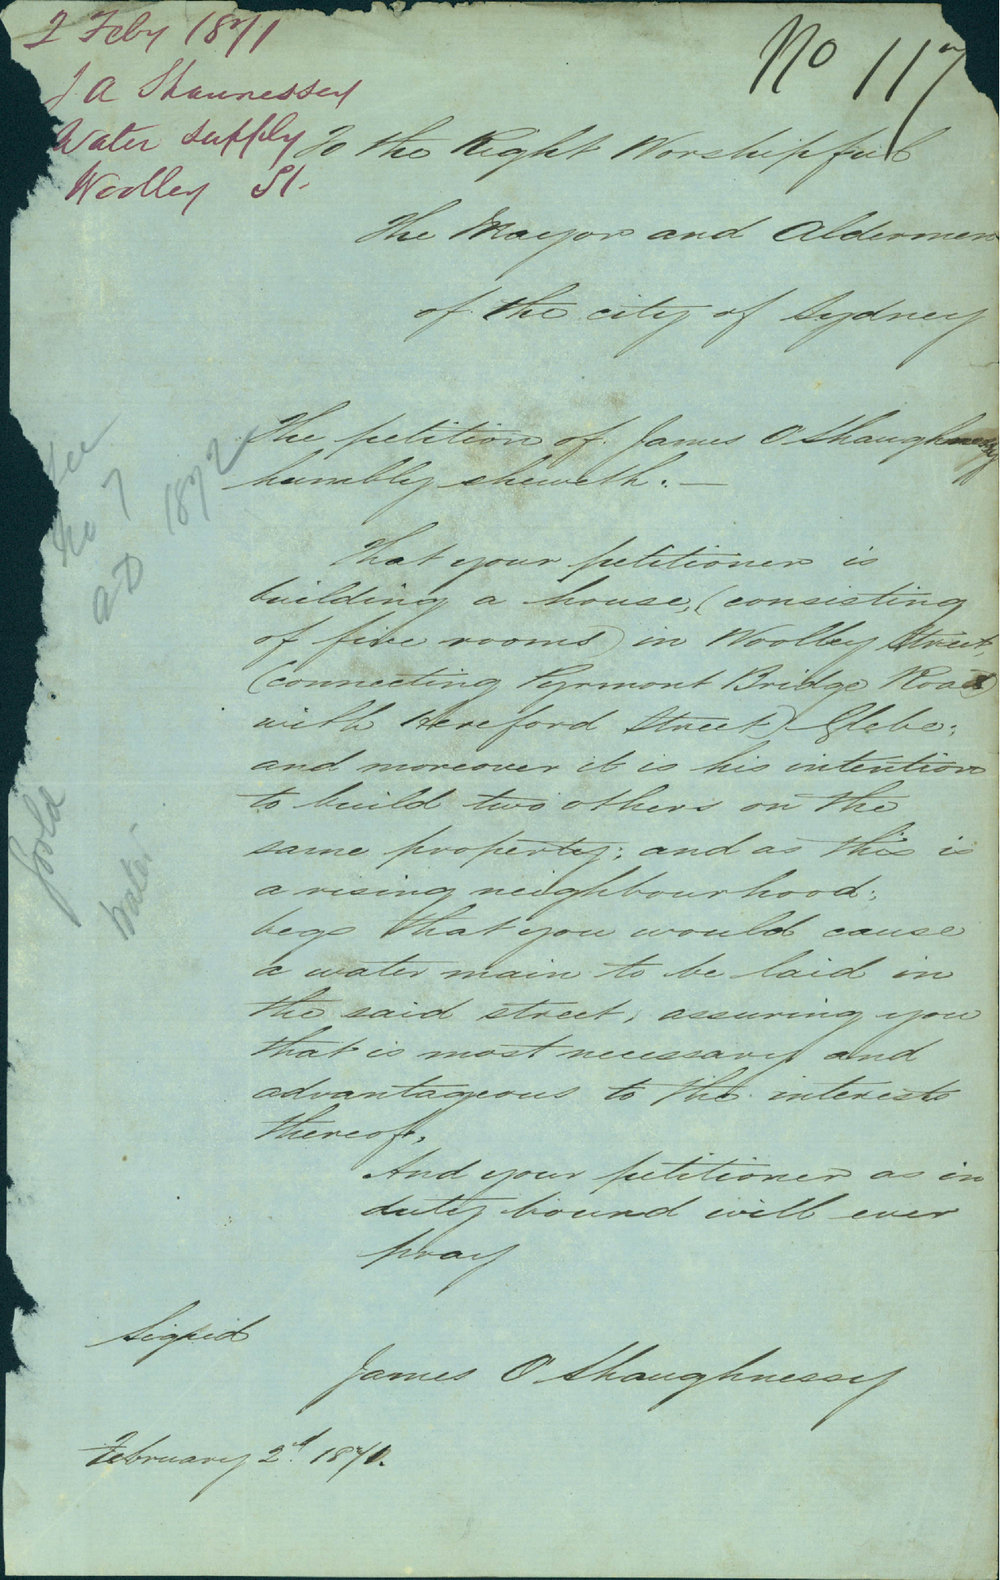 2 Feby 1871
J A Shaunessey
Water supply
Woolley St.
No 117
To the Right Worshipful
The Mayor and Aldermen
of the city of Sydney
The petition of James O'Shaughnessy
humbly sheweth:—
That your petitioner is
building a house, (consisting
of five rooms) in Woolley Street
(connecting Pyrmont Bridge Road
with Hereford Street) Glebe;
and moreover it is his intention
to build two others on the
same property; and as this is
a rising neighbourhood;
begs that you would cause
a water main to be laid in
the said street, assuring you
that is most necessary and
advantageous to the interests
thereof,
And your petitioner as in
duty bound will ever
pray
Signed
James O'Shaughnessy
February 2nd 1871.
No 7
AD 1872
water